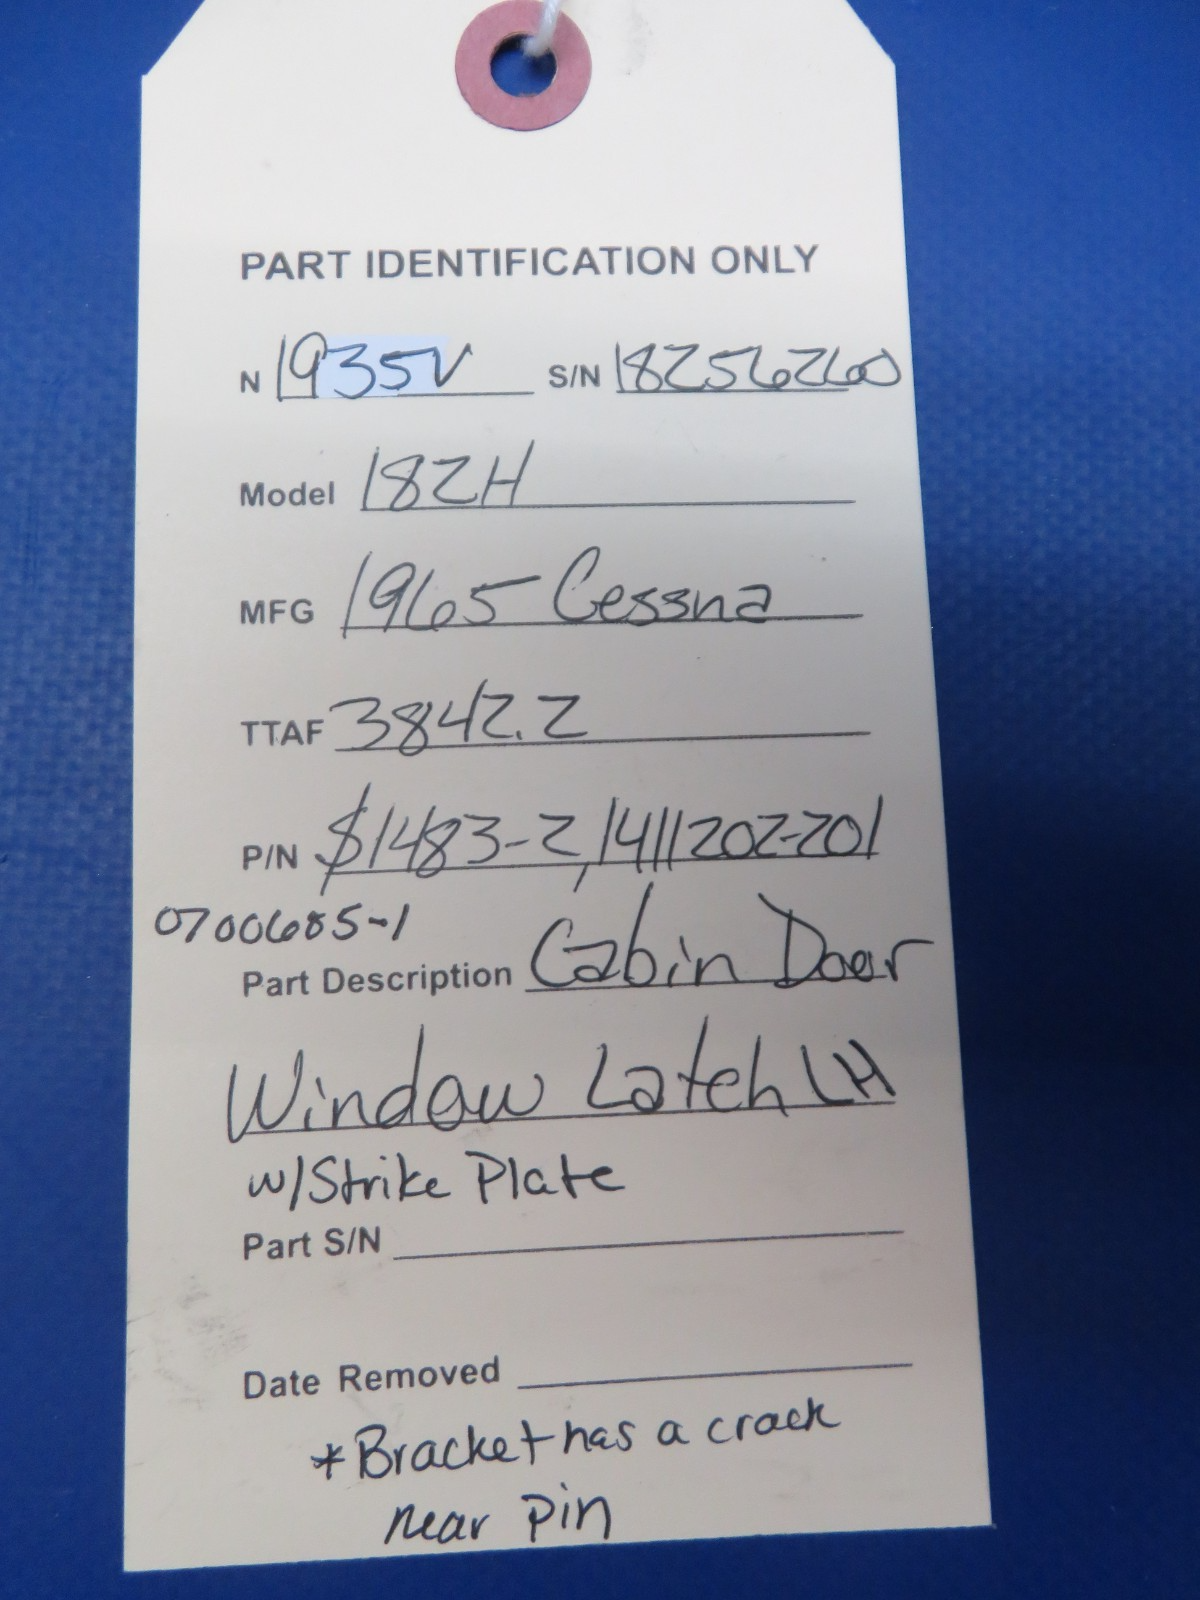 PART IDENTIFICATION ONLY
N 1935V S/N 18256260
Model 182H
MFG 1965 Cessna
TTAF 3842.2
P/N $1483-2, 1411202-201
0700685-1
Part Description Cabin Door
Window Latch LH
w/Strike Plate
Part S/N
Date Removed
*Bracket has a crack
near pin